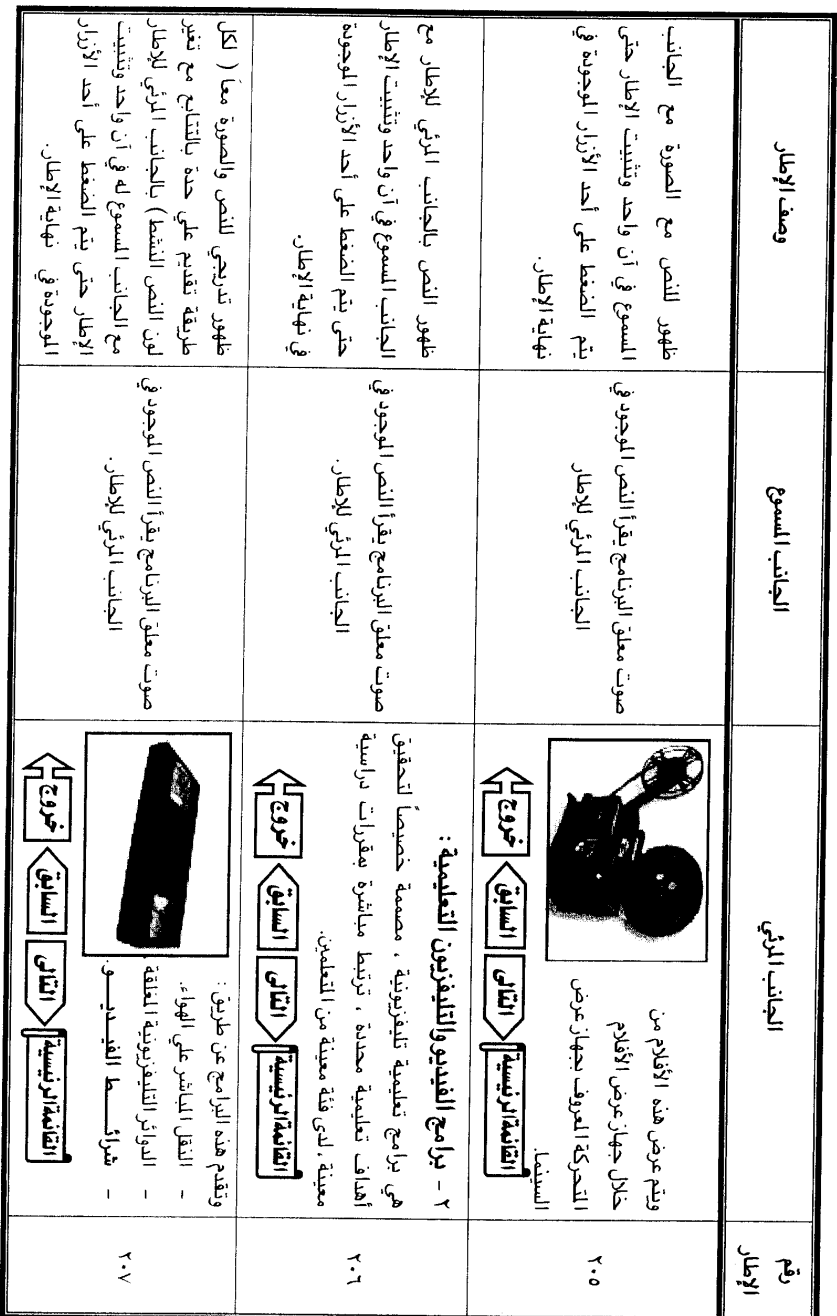 رقم
الإطار
الجانب المرئي
الجانب المسموع
وصف الإطار
٢٠٥
ويتم عرض هذه الأفلام من
خلال جهاز عرض الأفلام
المتحركة المعروف بجهاز عرض
السينما.
القائمة الرئيسية
التالى
السابق
خروج
صوت معلق البرنامج يقرأ النص الموجود في
الجانب المرئي للإطار
ظهور للنص مع الصورة مع الجانب
المسموع في آن واحد وتثبيت الإطار حتى
يتم الضغط على أحد الأزرار الموجودة في
نهاية الإطار.
٢٠٦
٢ - برامج الفيديو والتليفزيون التعليمية :
هي برامج تعليمية تليفزيونية ، مصممة خصيصاً لتحقيق
أهداف تعليمية محددة ، ترتبط مباشرة بمقررات دراسية
معينة ، لدى فئة معينة من المتعلمين.
القائمة الرئيسية
التالى
السابق
خروج
صوت معلق البرنامج يقرأ النص الموجود في
الجانب المرئي للإطار.
ظهور النص بالجانب المرئي للإطار مع
الجانب المسموع في آن واحد وتثبيت الإطار
حتى يتم الضغط على أحد الأزرار الموجودة
في نهاية الإطار.
٢٠٧
وتقدم هذه البرامج عن طريق :
- النقل المباشر على الهواء.
- الدوائر التليفزيونية المغلقة.
- شرائــط الفيـديــو.
القائمة الرئيسية
التالى
السابق
خروج
صوت معلق البرنامج يقرأ النص الموجود في
الجانب المرئي للإطار.
ظهور تدريجي للنص والصورة معاً ( لكل
طريقة تقديم على حدة بالتتابع مع تغير
لون النص النشط ) بالجانب المرئي للإطار
مع الجانب المسموع له في آن واحد وتثبيت
الإطار حتى يتم الضغط على أحد الأزرار
الموجودة في نهاية الإطار.